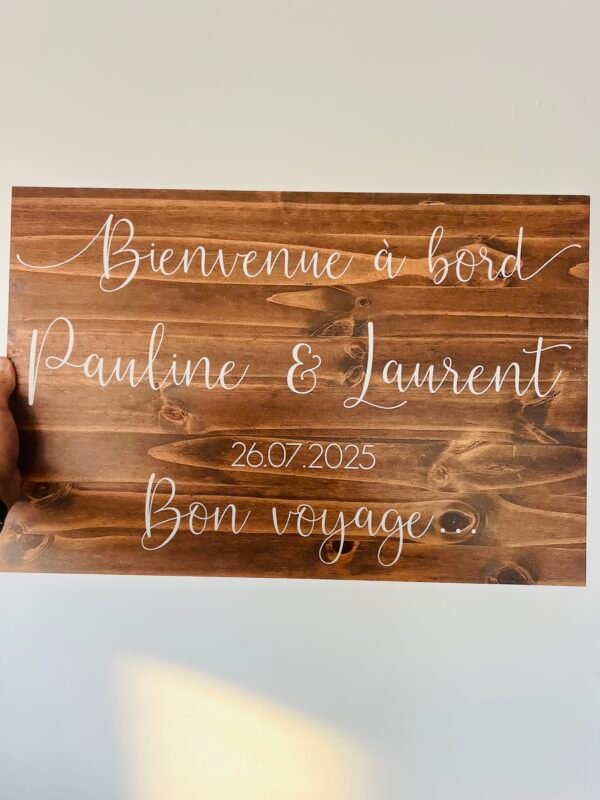 Bienvenue à bord
Pauline & Laurent
26.07.2025
Bon voyage...